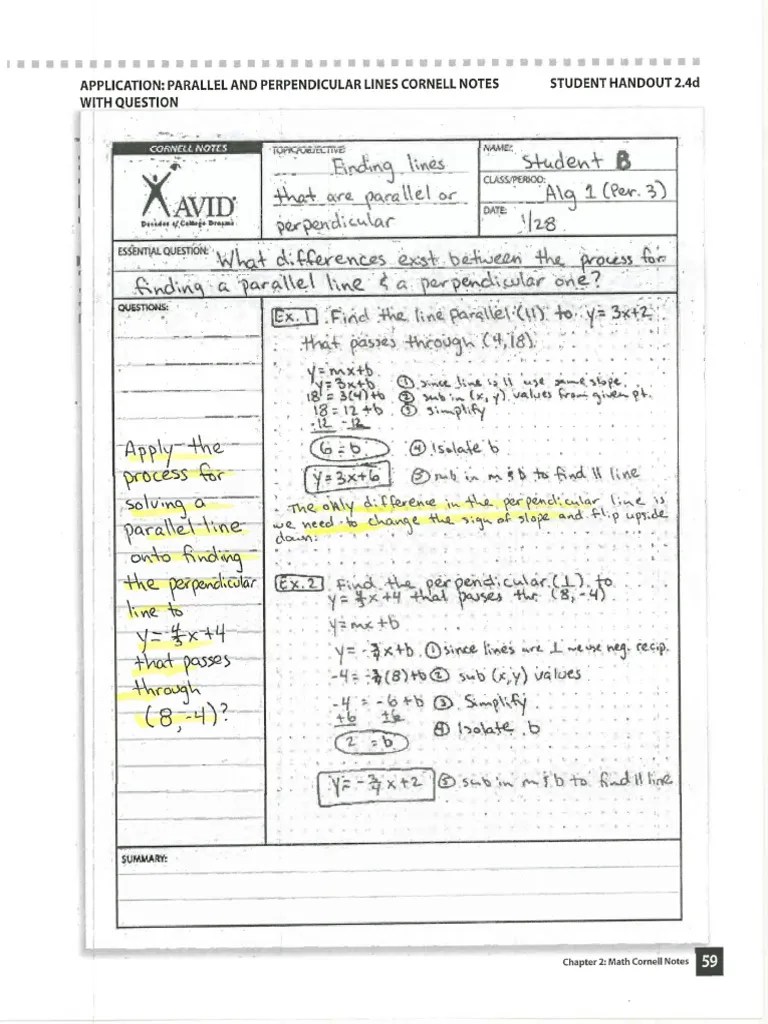 APPLICATION: PARALLEL AND PERPENDICULAR LINES CORNELL NOTES
WITH QUESTION
STUDENT HANDOUT 2.4d
CORNELL NOTES
AVID
Decades of College Dreams
TOPIC/OBJECTIVE:
Finding lines
that are parallel or
perpendicular
NAME:
Student B
CLASS/PERIOD:
Alg 1 (Per. 3)
DATE:
1/28
ESSENTIAL QUESTION: What differences exist between the process for
finding a parallel line & a perpendicular one?
QUESTIONS:
Apply the
process for
solving a
parallel line
onto finding
the perpendicular
line to
y = 4/3 x + 4
that passes
through
(8, -4)?
Ex. 1 Find the line parallel (||) to y = 3x+2
that passes through (4,18).
y = mx+b
y = 3x+b ① since line is || use same slope.
18 = 3(4)+b ② sub in (x, y) values from given pt.
18 = 12 + b ③ simplify
-12 -12
6 = b ④ Isolate b
y = 3x+6 ⑤ sub in m & b to find || line
The only difference in the perpendicular line is
we need to change the sign of slope and flip upside
down.
Ex. 2 Find the perpendicular (⊥) to
y = 4/3 x + 4 that passes thr. (8, -4)
y = mx + b
y = -3/4 x + b ① since lines are ⊥ we use neg. recip.
-4 = -3/4 (8) + b ② sub (x, y) values
-4 = -6 + b ③ Simplify
+6 +6
④ Isolate b
2 = b
y = -3/4 x + 2 ⑤ sub in m & b to find || line
SUMMARY:
Chapter 2: Math Cornell Notes 59